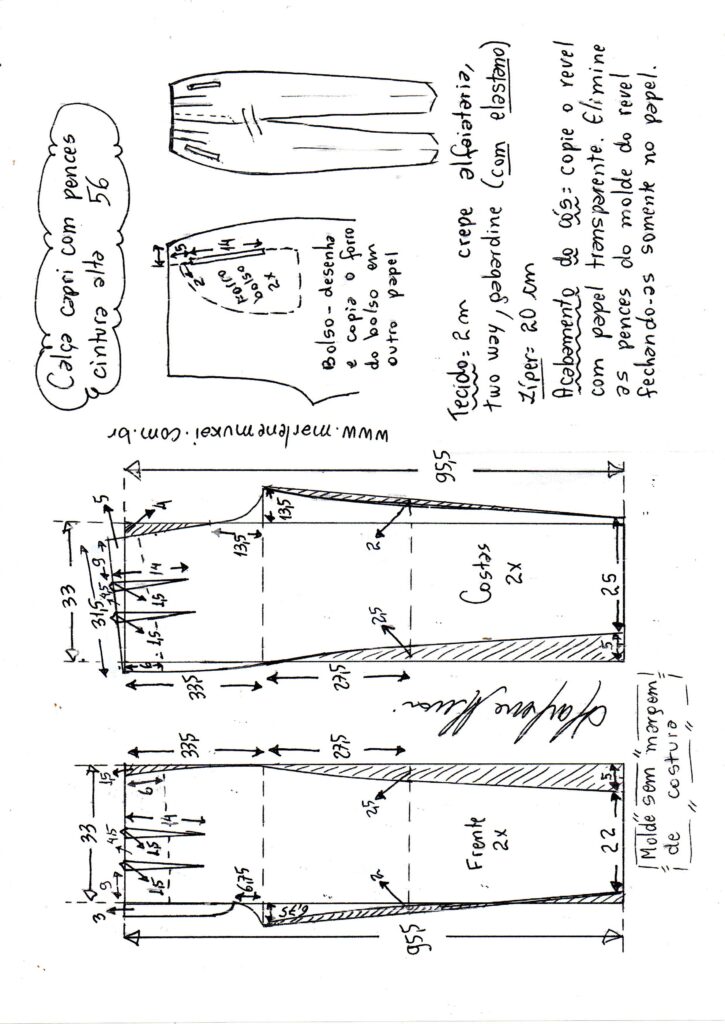 Calça capri com pences
cintura alta 56
1,5
14
2
2
Forro
bolso
2x
Bolso - desenha
e copia o forro
do bolso em
outro papel
Tecido = 2 m crepe alfaiataria,
two way, gabardine (com elastano)
Zíper = 20 cm
Acabamento do cós = copie o revel
com papel transparente. Elimine
as pences do molde do revel
fechando-as somente no papel.
www.marlenemukai.com.br
33
31,5
5
4
9
4,5
14
1,5
1,5
6
33,5
13,5
13,5
27,5
2
2,5
Costas
2x
25
5
95,5
33
3
9
4,5
14
1,5
1,5
1,5
6
33,5
6,75
6,75
27,5
2
2,5
Frente
2x
22
5
95,5
"Molde sem margem"
" de costura "